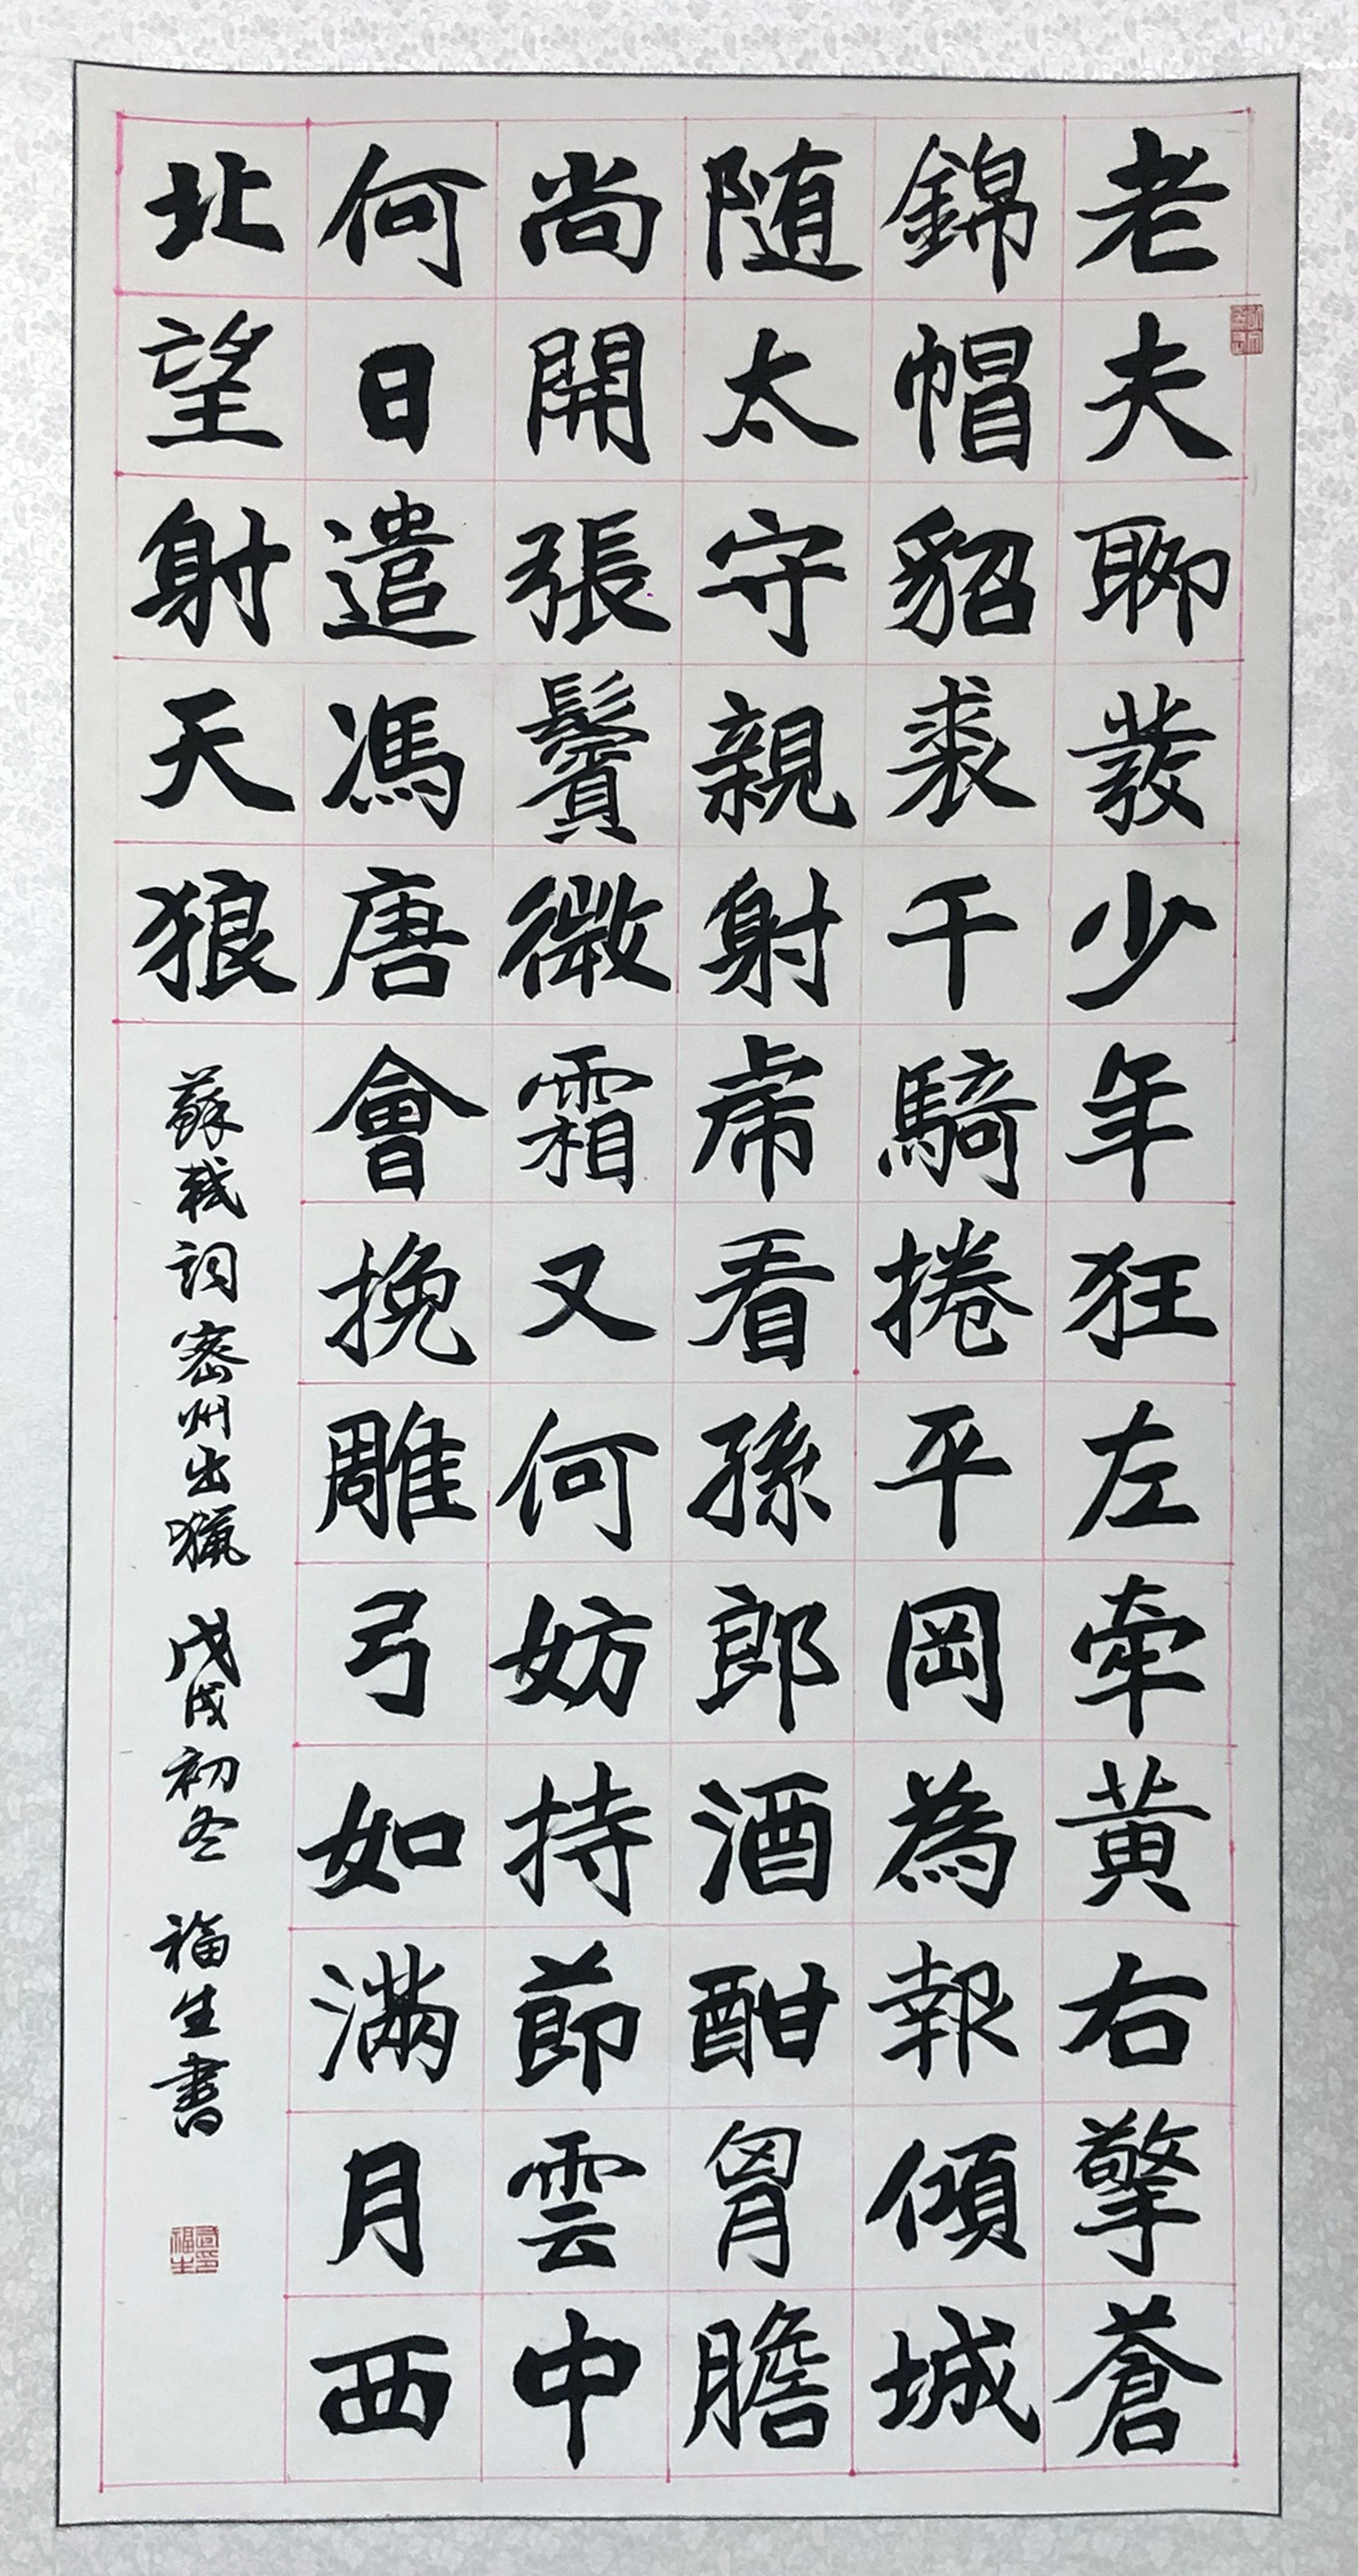 老夫聊發少年狂左牽黃右擎蒼
錦帽貂裘千騎捲平岡為報傾城
随太守親射虎看孫郎酒酣胷膽
尚開張鬢微霜又何妨持節雲中
何日遣馮唐會挽雕弓如滿月西
北望射天狼
蘇軾詞密州出獵 戊戌初冬 福生書